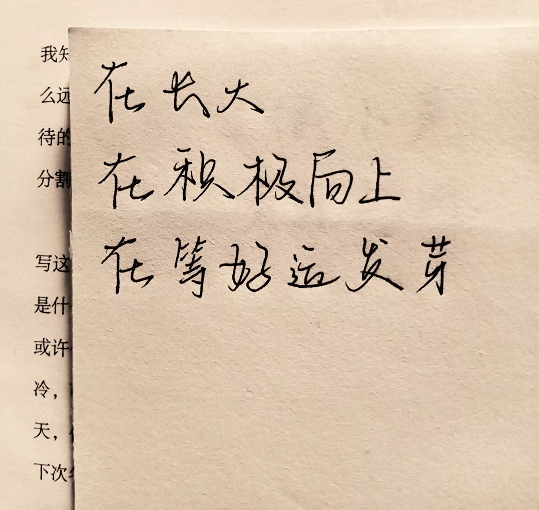 我知
么远
待的
分割
在长大
在积极向上
在等好运发芽
写这
是什
或许
冷，
天，
下次